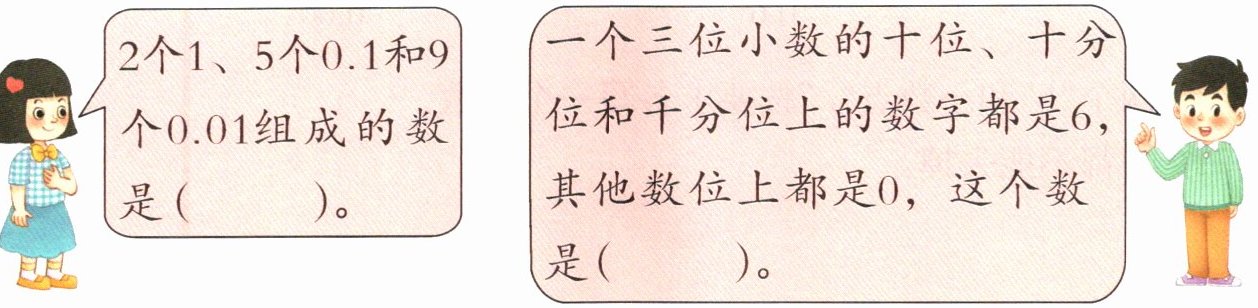 2个1、5个0.1和9
个0.01组成的数
是(　　　)。
一个三位小数的十位、十分
位和千分位上的数字都是6,
其他数位上都是0，这个数
是(　　　)。